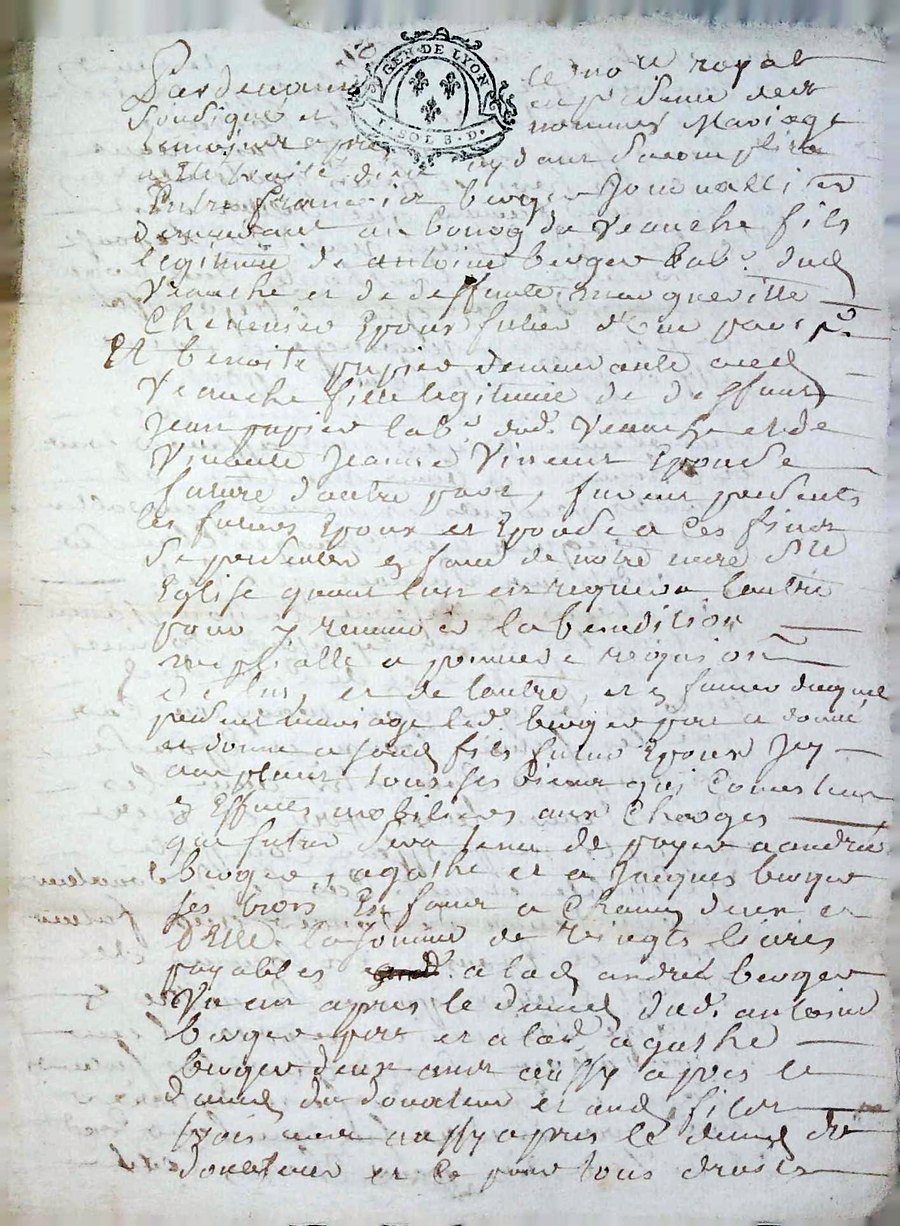 GEN DE LYON
1. SOL 8. D.
Pardevant le no.re royal
soussigné et en presence des
temoins apres nommes Mariage
a été traité
Entre francois berger Journallier
demeurant au bourg de Veauche fils
legitime de antoine berger lab.r dud
Veauche et de deffunte margueritte
Chenevier Epoux futur d'une part
Et benoite papier demeurante aud
Veauche fille legitime de deffunt
Jean papier lab.r dud. Veauche et de
vivante Jeanne Vincent Epouse
future dautre part, furent presents
les futurs Epoux et Epouse a Ces fins
se presenter en face de notre mere S.te
Eglise quand lun en requerra lautre
pour y recevoir la benediction
nuptialle a peine de
de lun, et de lautre, et en faveur duquel
present mariage led. berger pere a donné
et donne a son d fils futur Epoux
tous ses biens qui Consistent
en Effects mobiliers aux Charges
que futur sera tenu de payer a andrée
berger, agathe et a Jacques berger
ses trois Enfans a Chacun deux et
D'elle la somme de vingts livres
payables a lad andrée berger
Un an apres le deced dud. antoine
berger pere et a lad. agathe
berger deux ans aussy apres le
deced du donateur et aud filer
trois ans aussy apres le deced du
donateur et ce pour tous droits